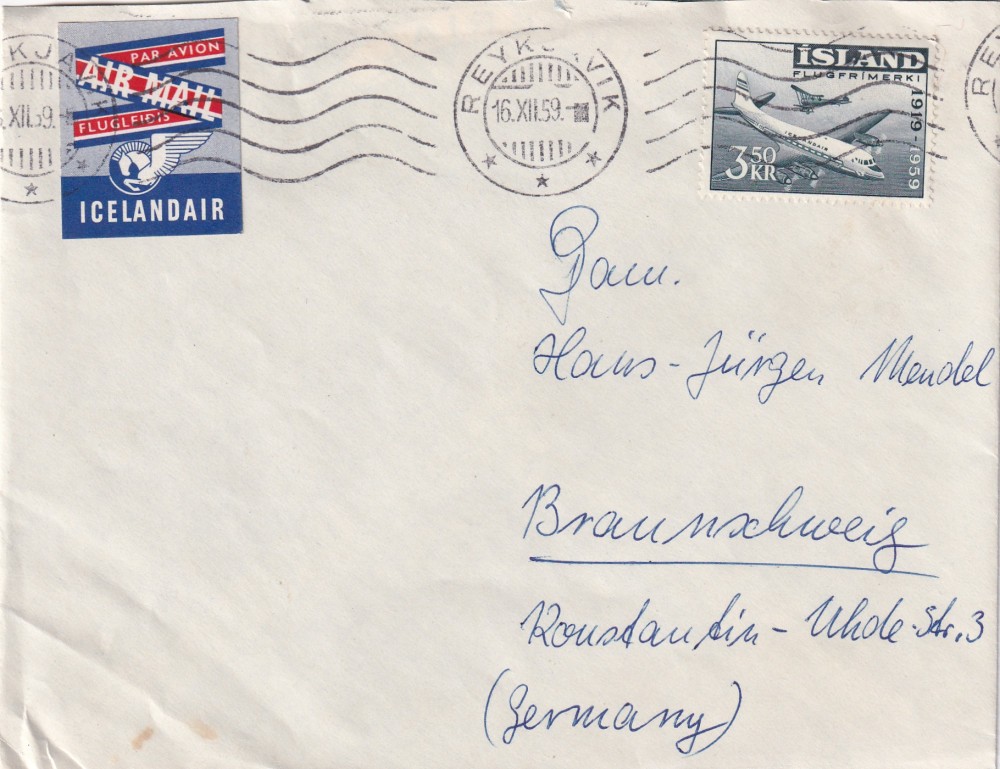 PAR AVION
AIR MAIL
FLUGLEIÐIS
ICELANDAIR
REYKJAVIK
16.XII.59.
ÍSLAND
FLUGFRÍMERKI
1919-1959
ICELANDAIR
3 50 KR
Hans-Jürgen Mendel
Braunschweig
Konstantin-Uhde-Str. 3
(Germany)